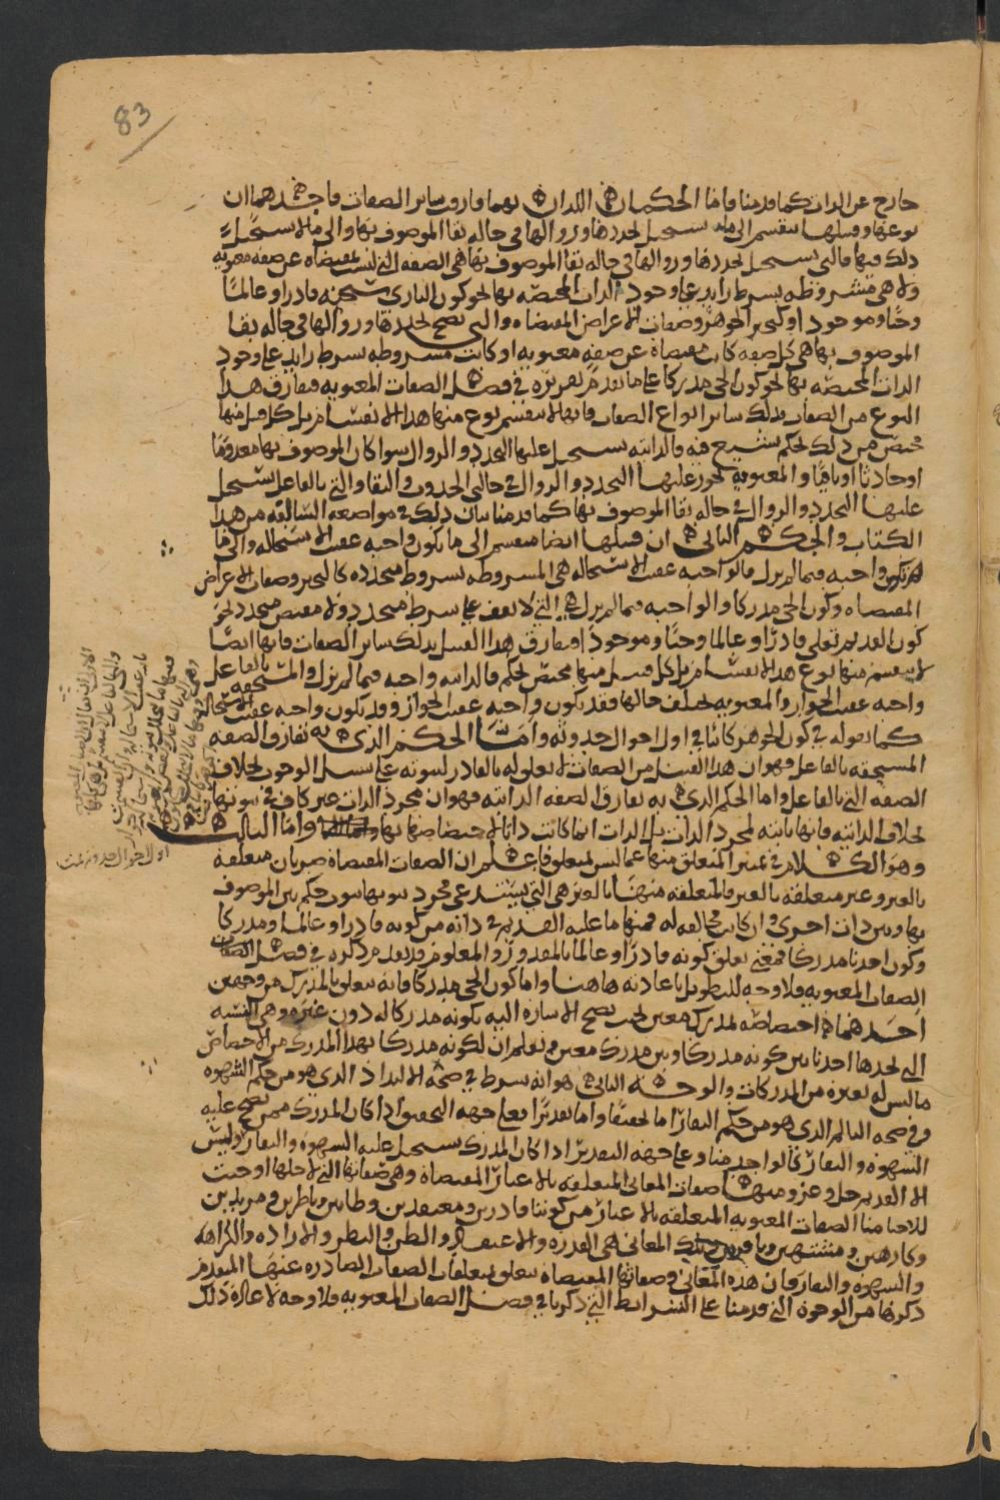 83
خارج عن الذات كما قدمنا واما الحكمان اللذان بهما فارقت سائر الصفات فاحدهما ان
نوعها وقبيلها ينقسم الى ما يستحيل تجددها وزوالها في حالة بقا الموصوف بها والى ما لا يستحيل
ذلك فيها فالتي يستحيل تجددها وزوالها في حالة بقا الموصوف بها هي الصفة التي ليست بمقتضاه عن صفة معنوية
ولا هي مشروطة بشرط زايد على وجود الذات المختصة بها نحو كون الباري سبحانه قادرا وعالما
وحيا وموجودا وكتحيز الجوهر وصفات الاعراض المقتضاه والتي يصح تجددها وزوالها في حالة بقا
الموصوف بها هي كل صفة كانت مقتضاة عن صفة معنوية او كانت مشروطة بشرط زايد على وجود
الذات المختصة بها نحو كون الحي مدركا على ما تقدم تقريره في فصل الصفات المعنوية ففارق هذا
النوع من الصفات بذلك سائر انواع الصفات فانها لا ينقسم نوع منها هذا الانقسام بل كل قبيل منها
مختص من ذلك بحكم يشيع فيه فالذاتية يستحيل عليها التجدد والزوال سوا كان الموصوف بها معدوما
او حادثا او باقيا والمعنوية يجوز عليها التجدد والزوال في حالتي الحدوث والبقا والتي بالفاعل يستحيل
عليها التجدد والزوال في حالة بقا الموصوف بها كما قدمنا بيان ذلك في مواضعه السالفة من هذا
الكتاب والحكم الثاني ان قبيلها ايضا ينقسم الى ما يكون واجبة عقيب الاستحالة والى ما
لم يكن واجبة فيما لم يزل فالواجبة عقيب الاستحالة هي المشروطة بشروط متجددة كالتحيز وصفات الاعراض
المقتضاه وكون الحي مدركا والواجبة فيما لم يزل هي التي لا تقف على شرط متجدد ولا مقتض متجدد نحو
كون القديم تعلى قادرا وعالما وحيا وموجودا ففارق هذا القبيل بذلك سائر الصفات فانها ايضا
لا ينقسم منها نوع هذا الانقسام بل كل قبيل منها مختص بحكم فالذاتية واجبة فيما لم يزل والمستحقة بالفاعل
واجبة عقيب الجواز والمعنوية يختلف حالها فقد يكون واجبة عقيب الجواز وقد يكون واجبة عقيب الاستحالة
كما نقوله في كون الجوهر كائنا في اول احوال حدوثه وامّا الحكم الذي به تفارق الصفة
المستحقة بالفاعل فهو ان هذا القبيل من الصفات لا تعلق له بالقادر لثبوته على سبيل الوجوب بخلاف
الصفة التي بالفاعل واما الحكم الذي به تفارق الصفة الذاتية فهو ان مجرد الذات غير كاف في ثبوتها
بخلاف الذاتية فانها ثابتة لمجرد الذات بل الذات انما كانت ذاتا لاختصاصها بها واما الثالث
وهو الكلام في تمييز المتعلق منها عما ليس بمتعلق فاعلم ان الصفات المقتضاة ضربان متعلقة
بالغير وغير متعلقة بالغير فالمتعلقة منها بالغير هي التي يستند عن مجرد ثبوتها ثبوت حكم بين الموصوف
بها وبين ذات اخرى وان كانت مخالفة له فمنها ما عليه القديم في ذاته من كونه قادرا وعالما ومدركا
وكون احدنا مدركا فمعنى تعلق كونه قادرا وعالما بالمقدور والمعلوم قد تقدم ذكره في فصل الصفات
الصفات المعنوية فلا وجه للتطويل باعادته هاهنا واما كون الحي مدركا فانه يتعلق بالمدرك من وجهين
احدهما اختصاصه بمدرك معين بحيث تصح الاشارة اليه بكونه مدركا له دون غيره وهي النسبة
التي نجدها احدنا بين كونه مدركا وبين مدرك معين ونعلم ان لكونه مدركا بهذا المدرك من الاختصاص
ما ليس له بغيره من المدركات والوجه الثاني هو انه شرط في صحة الالتذاذ الذي هو من حكم الشهوة
وفي صحة التالم الذي هو من حكم النفار اما تحقيقا واما تقديرا فعلى جهة التحقيق اذا كان المدرك ممن تصح عليه
الشهوة والنفار كالواحد منا وعلى جهة التقدير اذا كان المدرك يستحيل عليه الشهوة والنفار وليس
الا القديم جل وعز ومنها صفات المعاني المتعلقة بالاغيار المقتضاة وهي صفاتها التي لاجلها اوجبت
للاحيا منا الصفات المعنوية المتعلقة بالاغيار من كوننا قادرين ومعتقدين وظانين وناظرين ومريدين
وكارهين ومشتهين ونافرين وتلك المعاني هي القدرة والاعتقاد والظن والنظر والارادة والكراهة
والشهوة والنفار فان هذه المعاني وصفاتها المقتضاة تتعلق بمتعلقات الصفات الصادرة عنها المتقدم
ذكرها من الوجوه التي قدمنا على الشرائط التي ذكرنا في فصل الصفات المعنوية فلا وجه لاعادة ذلك